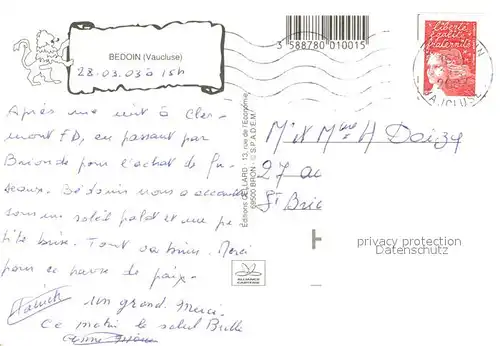 BEDOIN (Vaucluse)
28.03.03 à 15h
3 588780 010015
liberté
égalité
fraternité
Après une nuit à Cler-
mont FD, en passant par
Brionde pour l'achat de
seaux. Bédouin nous a
sous un soleil palot et une pe-
tite brise. Tout va bien. Merci
pour ce havre de paix.
Un grand Merci.
Ce matin le soleil Brille
Éditions CELLARD - 13, rue de l'Économie
69500 BRON - © S.P.A.D.E.M.
M et Mme H Daizy
27 ac
St Bric
privacy protection
Datenschutz
ALLIANCE
CARTERIE